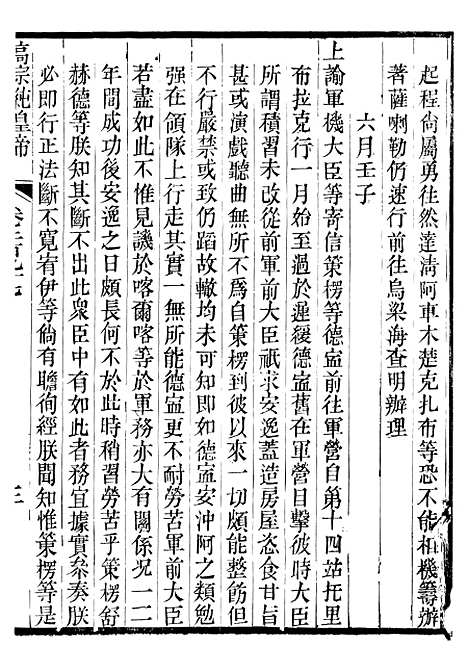 起程尚屬勇往然達淸阿車木楚克扎布等恐不能相機籌辦
著薩喇勒仍速行前往烏梁海查明辦理
六月壬子
上諭軍機大臣等寄信策楞等德寍前往軍營自第十四站托里
布拉克行一月始至過於遲緩德寍舊在軍營目擊彼時大臣
所謂積習未改從前軍前大臣祇求安逸蓋造房屋恣食甘旨
甚或演戲聽曲無所不爲自策楞到彼以來一切頗能整飭但
不行嚴禁或致仍蹈故轍均未可知即如德寍安沖阿之類勉
强在領隊上行走其實一無所能德寍更不耐勞苦軍前大臣
若盡如此不惟見譏於喀爾喀等於軍務亦大有關係况一二
年間成功後安逸之日頗長何不於此時稍習勞苦乎策楞舒
赫德等朕知其斷不出此衆臣中有如此者務宜據實參奏朕
必即行正法斷不寬宥伊等倘有瞻徇經朕聞知惟策楞等是
高宗純皇帝